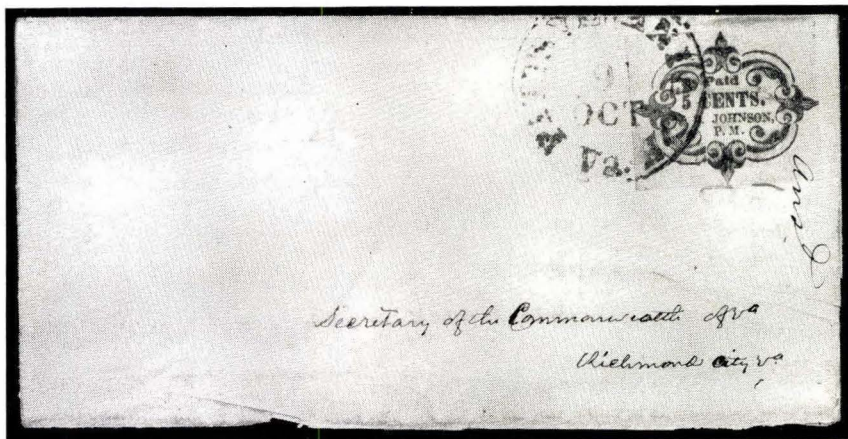 9
OCT
Va.
Paid
5 CENTS.
JOHNSON,
P. M.
Ansd
Secretary of the Commonwealth of Va
Richmond city Va